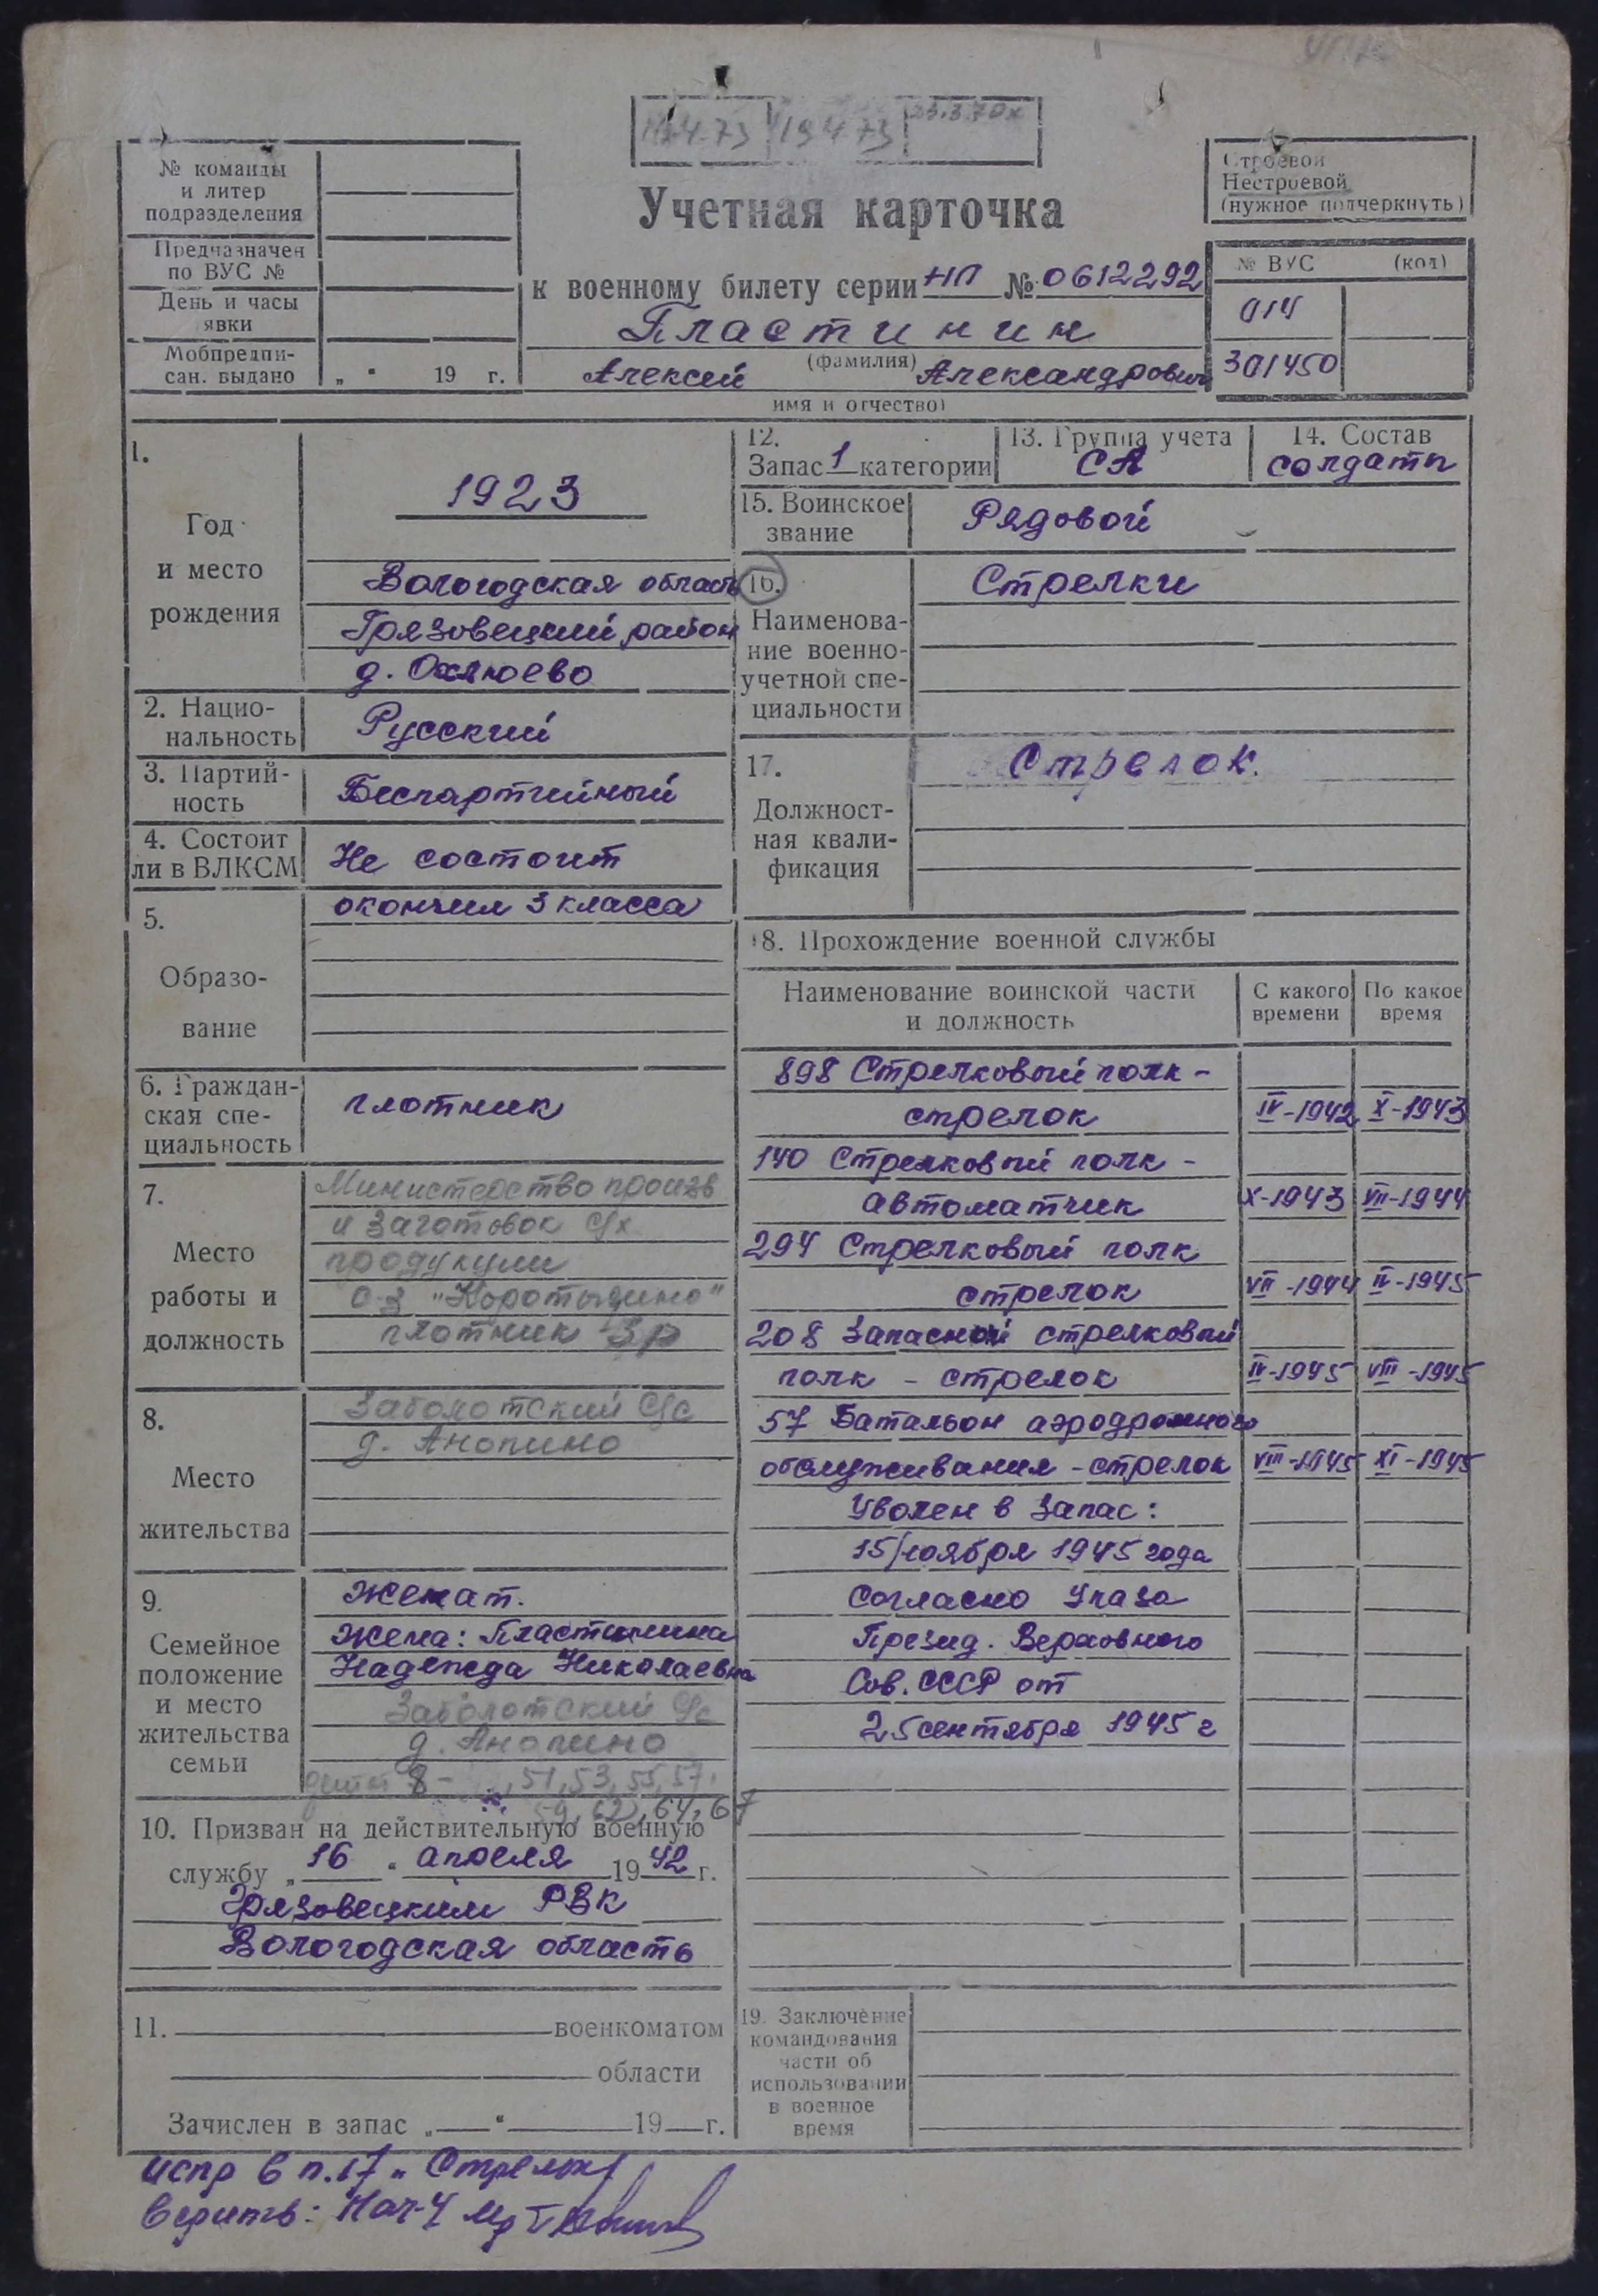 17.4.73 19.4.73 23.3.70
№ команды
и литер
подразделения
Предназначен
по ВУС №
День и часы
явки
Мобпредпи-
сан. выдано „ " 19 г.
Учетная карточка
к военному билету серии НП № 0612292
Пластинин
(фамилия)
Алексей Александрович
имя и отчество)
Строевой
Нестроевой
(нужное подчеркнуть)
№ ВУС (код)
014
301450
1.
Год
и место
рождения
1923
Вологодская область
Грязовецкий район
д. Охлюево
2. Нацио-
нальность
Русский
3. Партий-
ность
Беспартийный
4. Состоит
ли в ВЛКСМ
Не состоит
5.
Образо-
вание
окончил 3 класса
6. Граждан-
ская спе-
циальность
плотник
7.
Место
работы и
должность
Министерство произв
и заготовок с/х
продукции
с-з "Коротыгино"
плотник 3р
8.
Место
жительства
Заболотский с/с
д. Анопино
9.
Семейное
положение
и место
жительства
семьи
Женат.
Жена: Пластинина
Надежда Николаевна
Заболотский с/с
д. Анопино
дети 8 - , 51, 53, 55, 57,
59, 62, 64, 67
10. Призван на действительную военную
службу „16" апреля 1942 г.
Грязовецким РВК
Вологодская область
11. военкоматом
области
Зачислен в запас „ " 19 г.
12.
Запас 1 категории
13. Группа учета
СА
14. Состав
солдаты
15. Воинское
звание
Рядовой
16.
Наименова-
ние военно-
учетной спе-
циальности
Стрелки
17.
Должност-
ная квали-
фикация
Стрелок.
18. Прохождение военной службы
Наименование воинской части
и должность
С какого
времени
По какое
время
898 Стрелковый полк -
стрелок IV-1942 X-1943
140 Стрелковый полк -
автоматчик X-1943 VII-1944
294 Стрелковый полк
стрелок VII-1944 II-1945
208 Запасной стрелковый
полк - стрелок IV-1945 VIII-1945
57 Батальон аэродромного
обслуживания - стрелок VIII-1945 XI-1945
Уволен в запас:
15 ноября 1945 года
Согласно Указа
Презид. Верховного
Сов. СССР от
25 сентября 1945 г
19. Заключение
командования
части об
использовании
в военное
время
испр в п.17 „Стрелок"
верить: Нач-4